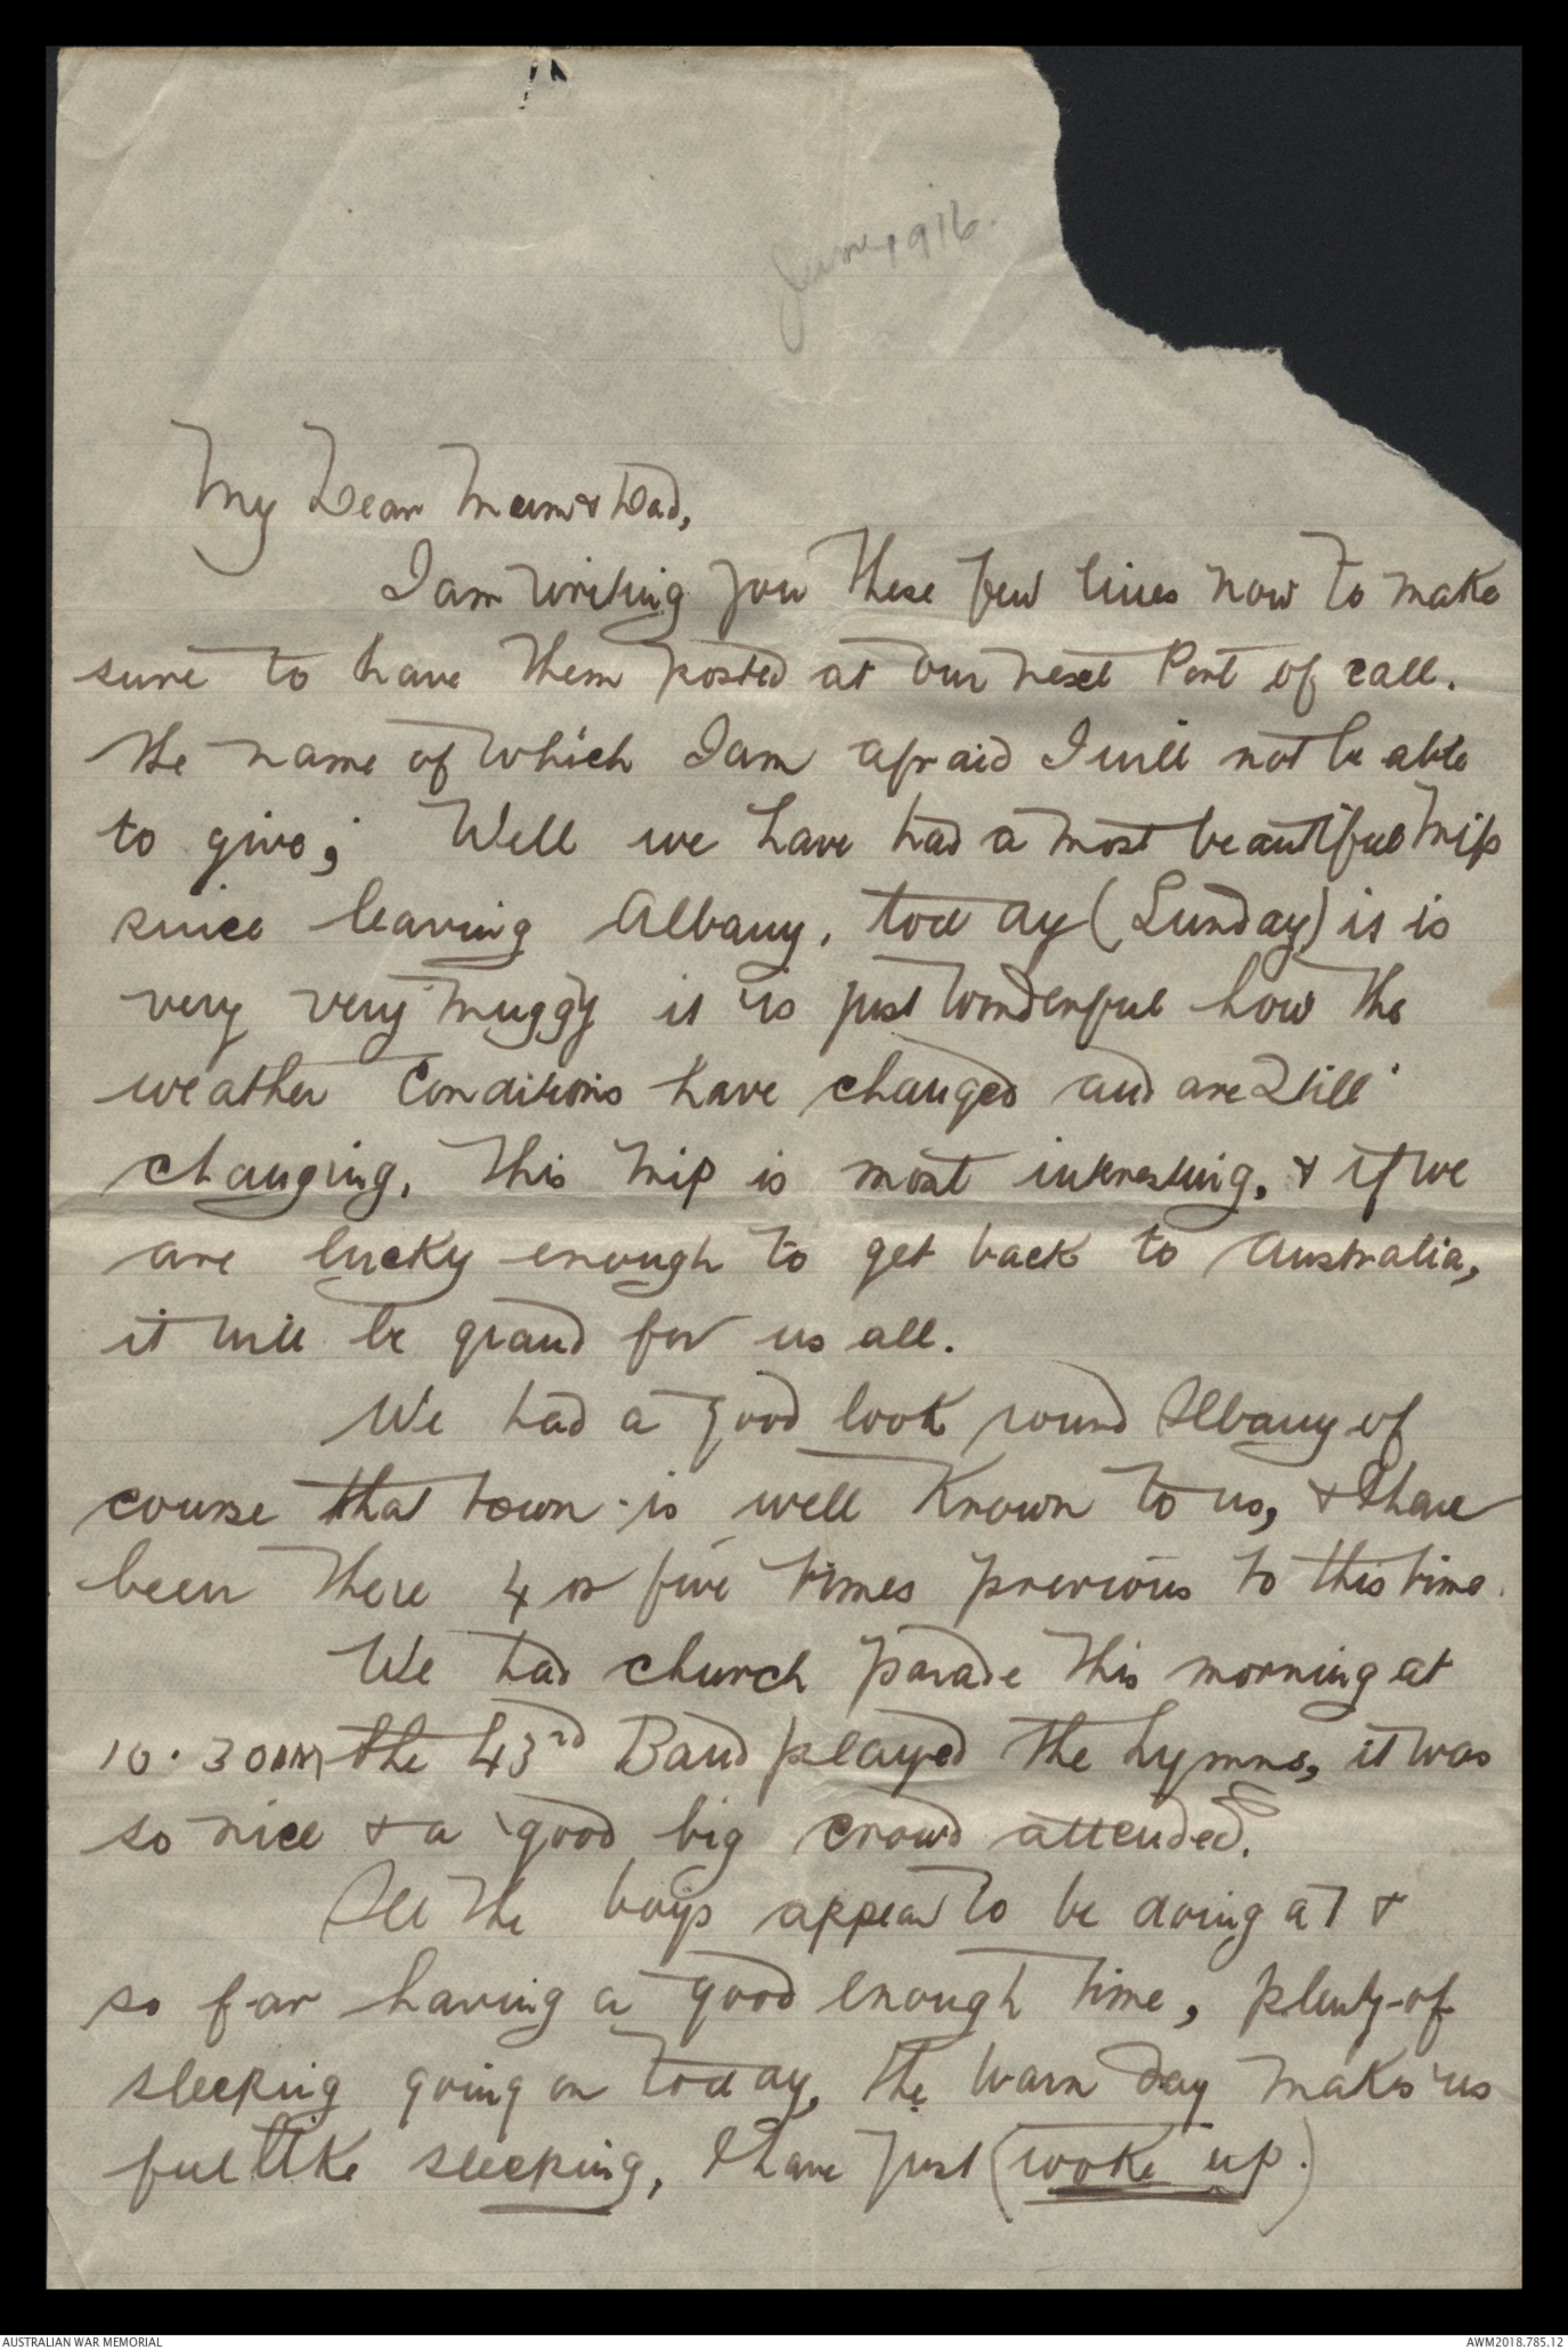 June 1916.
My Dear Mum & Dad,
I am writing you these few lines now to make
sure to have them posted at our next Port of call.
the name of which I am afraid I will not be able
to give; Well we have had a most beautiful trip
since leaving Albany, today (Sunday) it is
very very muggy it is just wonderful how the
weather conditions have changed and are still
changing, this trip is most interesting, & if we
are lucky enough to get back to Australia,
it will be grand for us all.
We had a good look round Albany of
course that town is well known to us, & I have
been there 4 or five times previous to this time.
We had church parade this morning at
10.30am the 43rd Band played the hymns, it was
so nice & a good big crowd attended.
All the boys appear to be doing a1 &
so far having a good enough time, plenty of
sleeping going on today, the warm day makes us
feel like sleeping, I have just (woke up.)
AUSTRALIAN WAR MEMORIAL
AWM2018.785.12